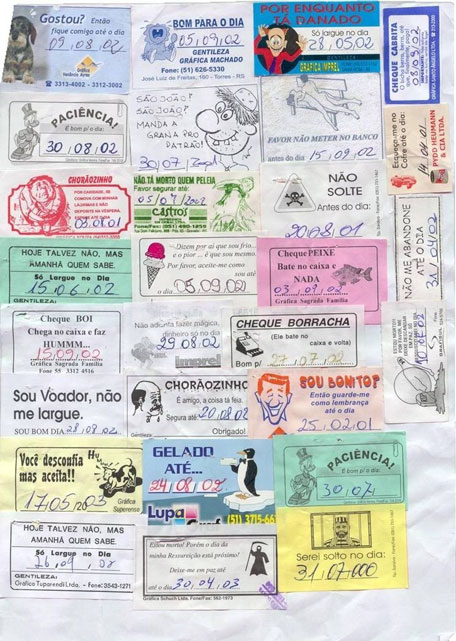 Gostou? Então
fique comigo até o dia
09/08/02
Gráfica
3313-4002 - 3312-3002
BOM PARA O DIA
05/09/02
GENTILEZA
GRÁFICA MACHADO
Fone: (51) 626-5330
José Luiz de Freitas, 160 - Torres - RS
POR ENQUANTO
TÁ DANADO
Só largue no dia
28/05/02
GENTILEZA
GRÁFICA IMPREL
CHEQUE CABRITA
08/09/02
PACIÊNCIA!
É bom p/ o dia:
30/08/02
SÃO JOÃO?
SÃO JOÃO?
MANDA A
GRANA PRO
PATRÃO!
30/07
FAVOR NÃO METER NO BANCO
antes do dia 15/09/02
Esqueça-me no
Cofre até o dia
14/04/01
PYDD HEUMANN
& CIA LTDA.
CHORÃOZINHO
POR CARIDADE, SE
COMOVA COM MINHAS
LÁGRIMAS E NÃO
DEPOSITE NA VÉSPERA.
09/08/01
NÃO TÁ MORTO QUEM PELEIA
Favor segurar até:
05/07/2002
CASTROS
NÃO
SOLTE
Antes do dia:
20/08/01
NÃO ME ABANDONE
ATÉ O DIA
31/04/02
HOJE TALVEZ NÃO, MAS
AMANHÃ QUEM SABE.
Só Largue no Dia
15/06/02
GENTILEZA:
Dizem por aí que sou frio...
e o pior ... é que sou mesmo.
Por favor, aceite-me como
sou até
o dia
05/09/02
Cheque PEIXE
Bate no caixa e
NADA
03/09/02
Gráfica Sagrada Família
Cheque BOI
Chega no caixa e faz
HUMMM...
15/09/02
Gráfica Sagrada Família
Fone 55 3312 4516
Não adianta fazer mágica,
dinheiro só no dia
29/08/02
imprel
CHEQUE BORRACHA
(Ele bate no
caixa e volta)
Bom p/ 27/07/02
10/08/02
Sou Voador, não
me largue.
SOU BOM DIA 28/08/02
CHORÃOZINHO
É amigo, a coisa tá feia.
Segura até 20/08/02
Gentileza
Obrigado!
SOU BONITO?
Então guarde-me
como lembrança
até o dia
25/02/01
Você desconfia
mas aceita!!
17/05/2003
Gráfica
Superense
GELADO
ATÉ...
24/08/02
Lupa
Graf
(51) 3715-66
PACIÊNCIA!
É bom p/ o dia:
30/07/
HOJE TALVEZ NÃO, MAS
AMANHÃ QUEM SABE.
Só Largue no Dia
26/09/02
GENTILEZA:
Gráfica Tuparendi Ltda. - Fone: 3543-1271
Estou morto! Porém o dia da
minha Ressureição está próximo!
Deixe-me em paz até
o dia 30/04/03
Gráfica Schuch Ltda. Fone/Fax: 562-1973
Serei solto no dia:
31/07/000